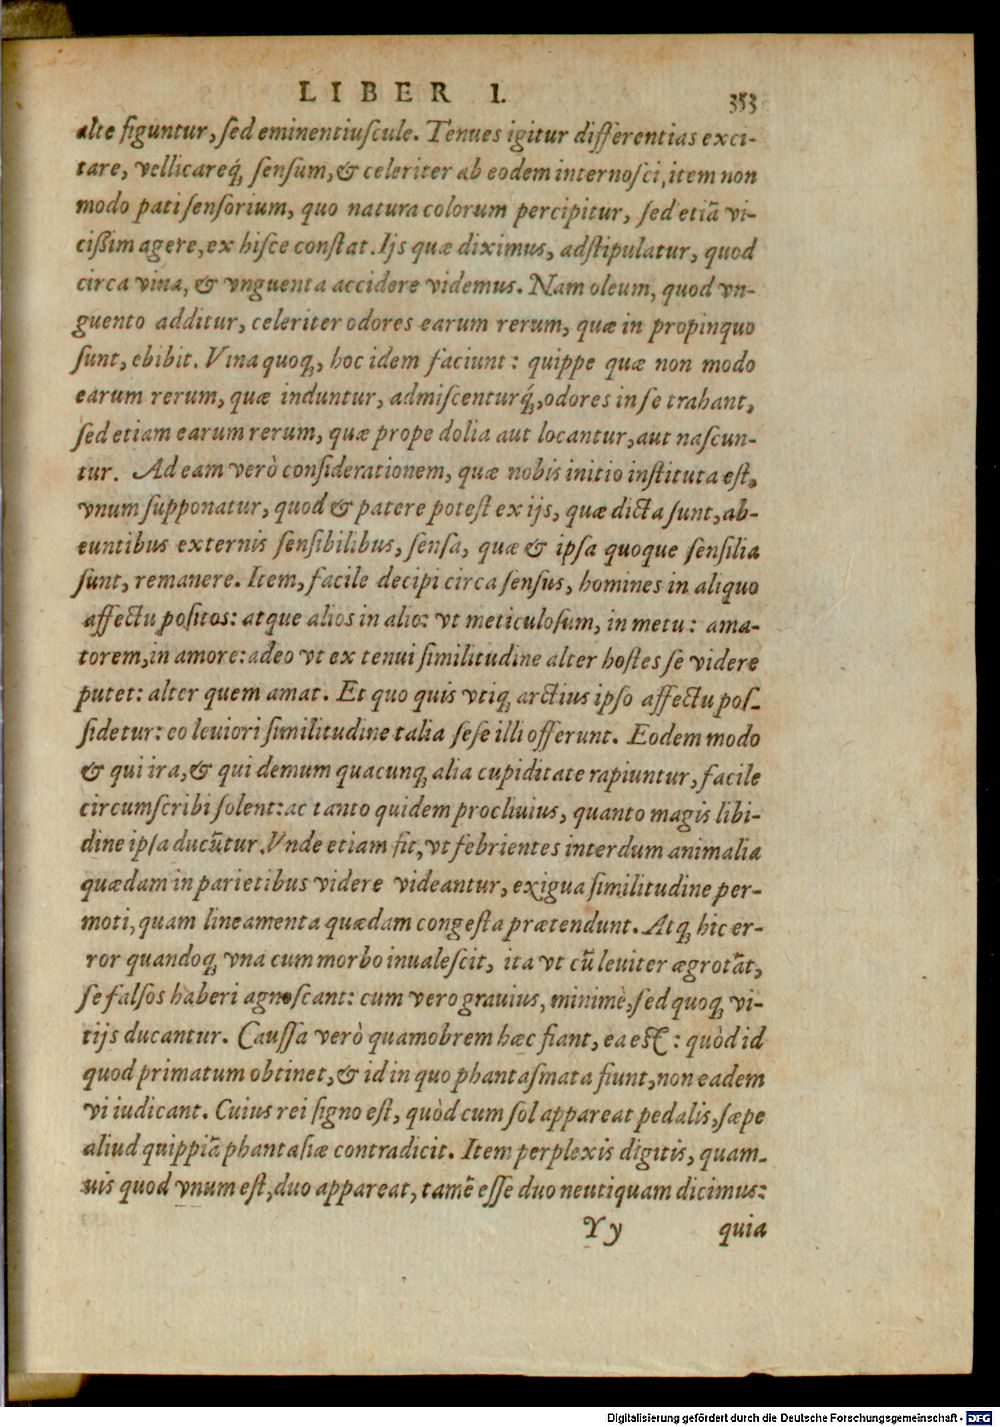 LIBER I.
353
alte figuntur, sed eminentiuscule. Tenues igitur differentias exci-
tare, vellicareq́, sensum, & celeriter ab eodem internosci, item non
modo pati sensorium, quo natura colorum percipitur, sed etiã vi-
cißim agere, ex hisce constat. Ijs quæ diximus, adstipulatur, quod
circa vina, & vnguenta accidere videmus. Nam oleum, quod vn-
guento additur, celeriter odores earum rerum, quæ in propinquo
sunt, ebibit. Vina quoq, hoc idem faciunt: quippe quæ non modo
earum rerum, quæ induntur, admiscenturq́,, odores in se trahant,
sed etiam earum rerum, quæ prope dolia aut locantur, aut nascun-
tur. Ad eam verò considerationem, quæ nobis initio instituta est,
vnum supponatur, quod & patere potest ex ijs, quæ dicta sunt, ab-
euntibus externis sensibilibus, sensa, quæ & ipsa quoque sensilia
sunt, remanere. Item, facile decipi circa sensus, homines in aliquo
affectu positos: atque alios in alio: vt meticulosum, in metu: ama-
torem, in amore: adeo vt ex tenui similitudine alter hostes se videre
putet: alter quem amat. Et quo quis vtiq, arctius ipso affectu pos-
sidetur: eo leuiori similitudine talia sese illi offerunt. Eodem modo
& qui ira, & qui demum quacunq, alia cupiditate rapiuntur, facile
circumscribi solent: ac tanto quidem procliuius, quanto magis libi-
dine ipsa ducũtur. Vnde etiam fit, vt febrientes interdum animalia
quædam in parietibus videre videantur, exigua similitudine per-
moti, quam lineamenta quædam congesta prætendunt. Atq, hic er-
ror quandoq, vna cum morbo inualescit, ita vt cũ leuiter ægrotãt,
se falsos haberi agnoscant: cum vero grauius, minimè, sed quoq, vi-
tijs ducantur. Caussa verò quamobrem hæc fiant, ea est: quòd id
quod primatum obtinet, & id in quo phantasmata fiunt, non eadem
vi iudicant. Cuius rei signo est, quòd cum sol appareat pedalis, sæpe
aliud quippiã phantasiæ contradicit. Item perplexis digitis, quam-
uis quod vnum est, duo appareat, tamẽ esse duo neutiquam dicimus:
Yy
quia
Digitalisierung gefördert durch die Deutsche Forschungsgemeinschaft - DFG